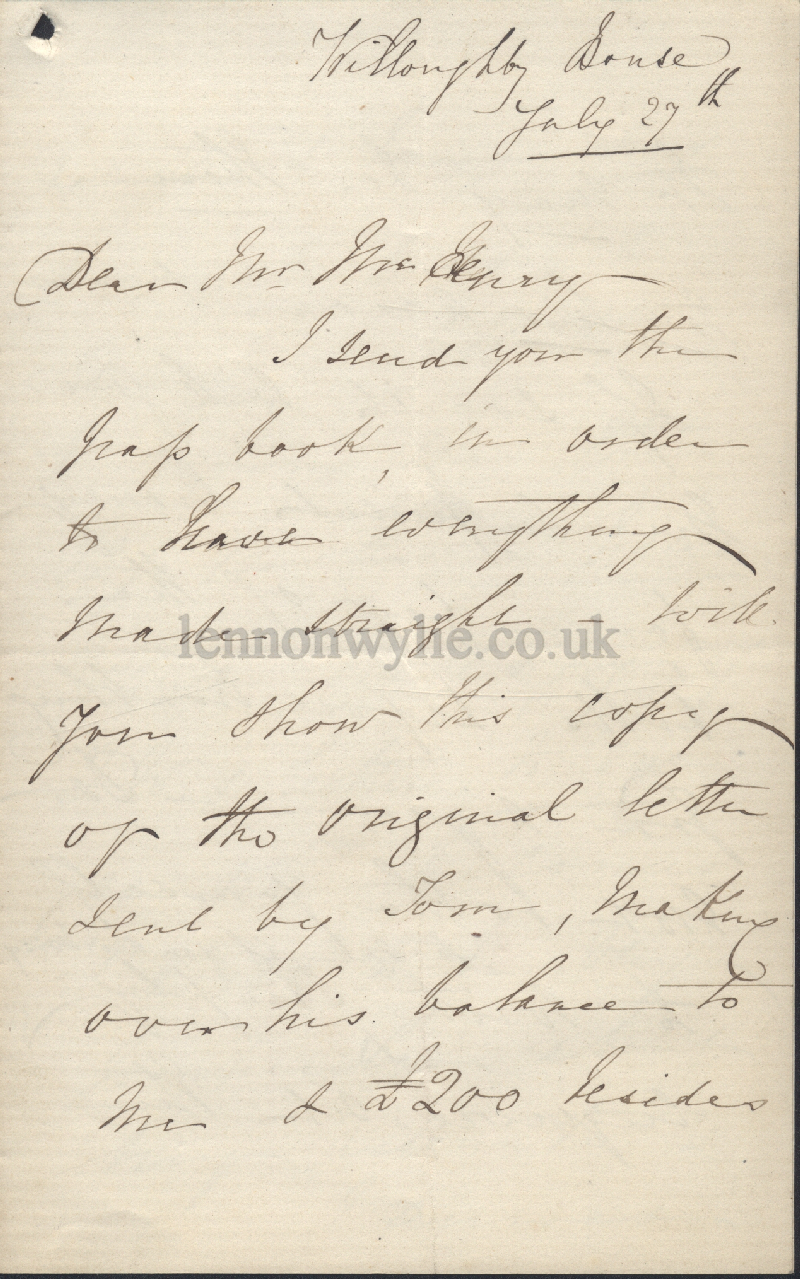 Willoughby House
July 27th
Dear Mr. McHenry
I send you the
pass book, in order
to have everything
made straight – will
you show this copy
of the original letter
sent by Tom, making
over his balance to
me & £200 besides
lennonwylie.co.uk